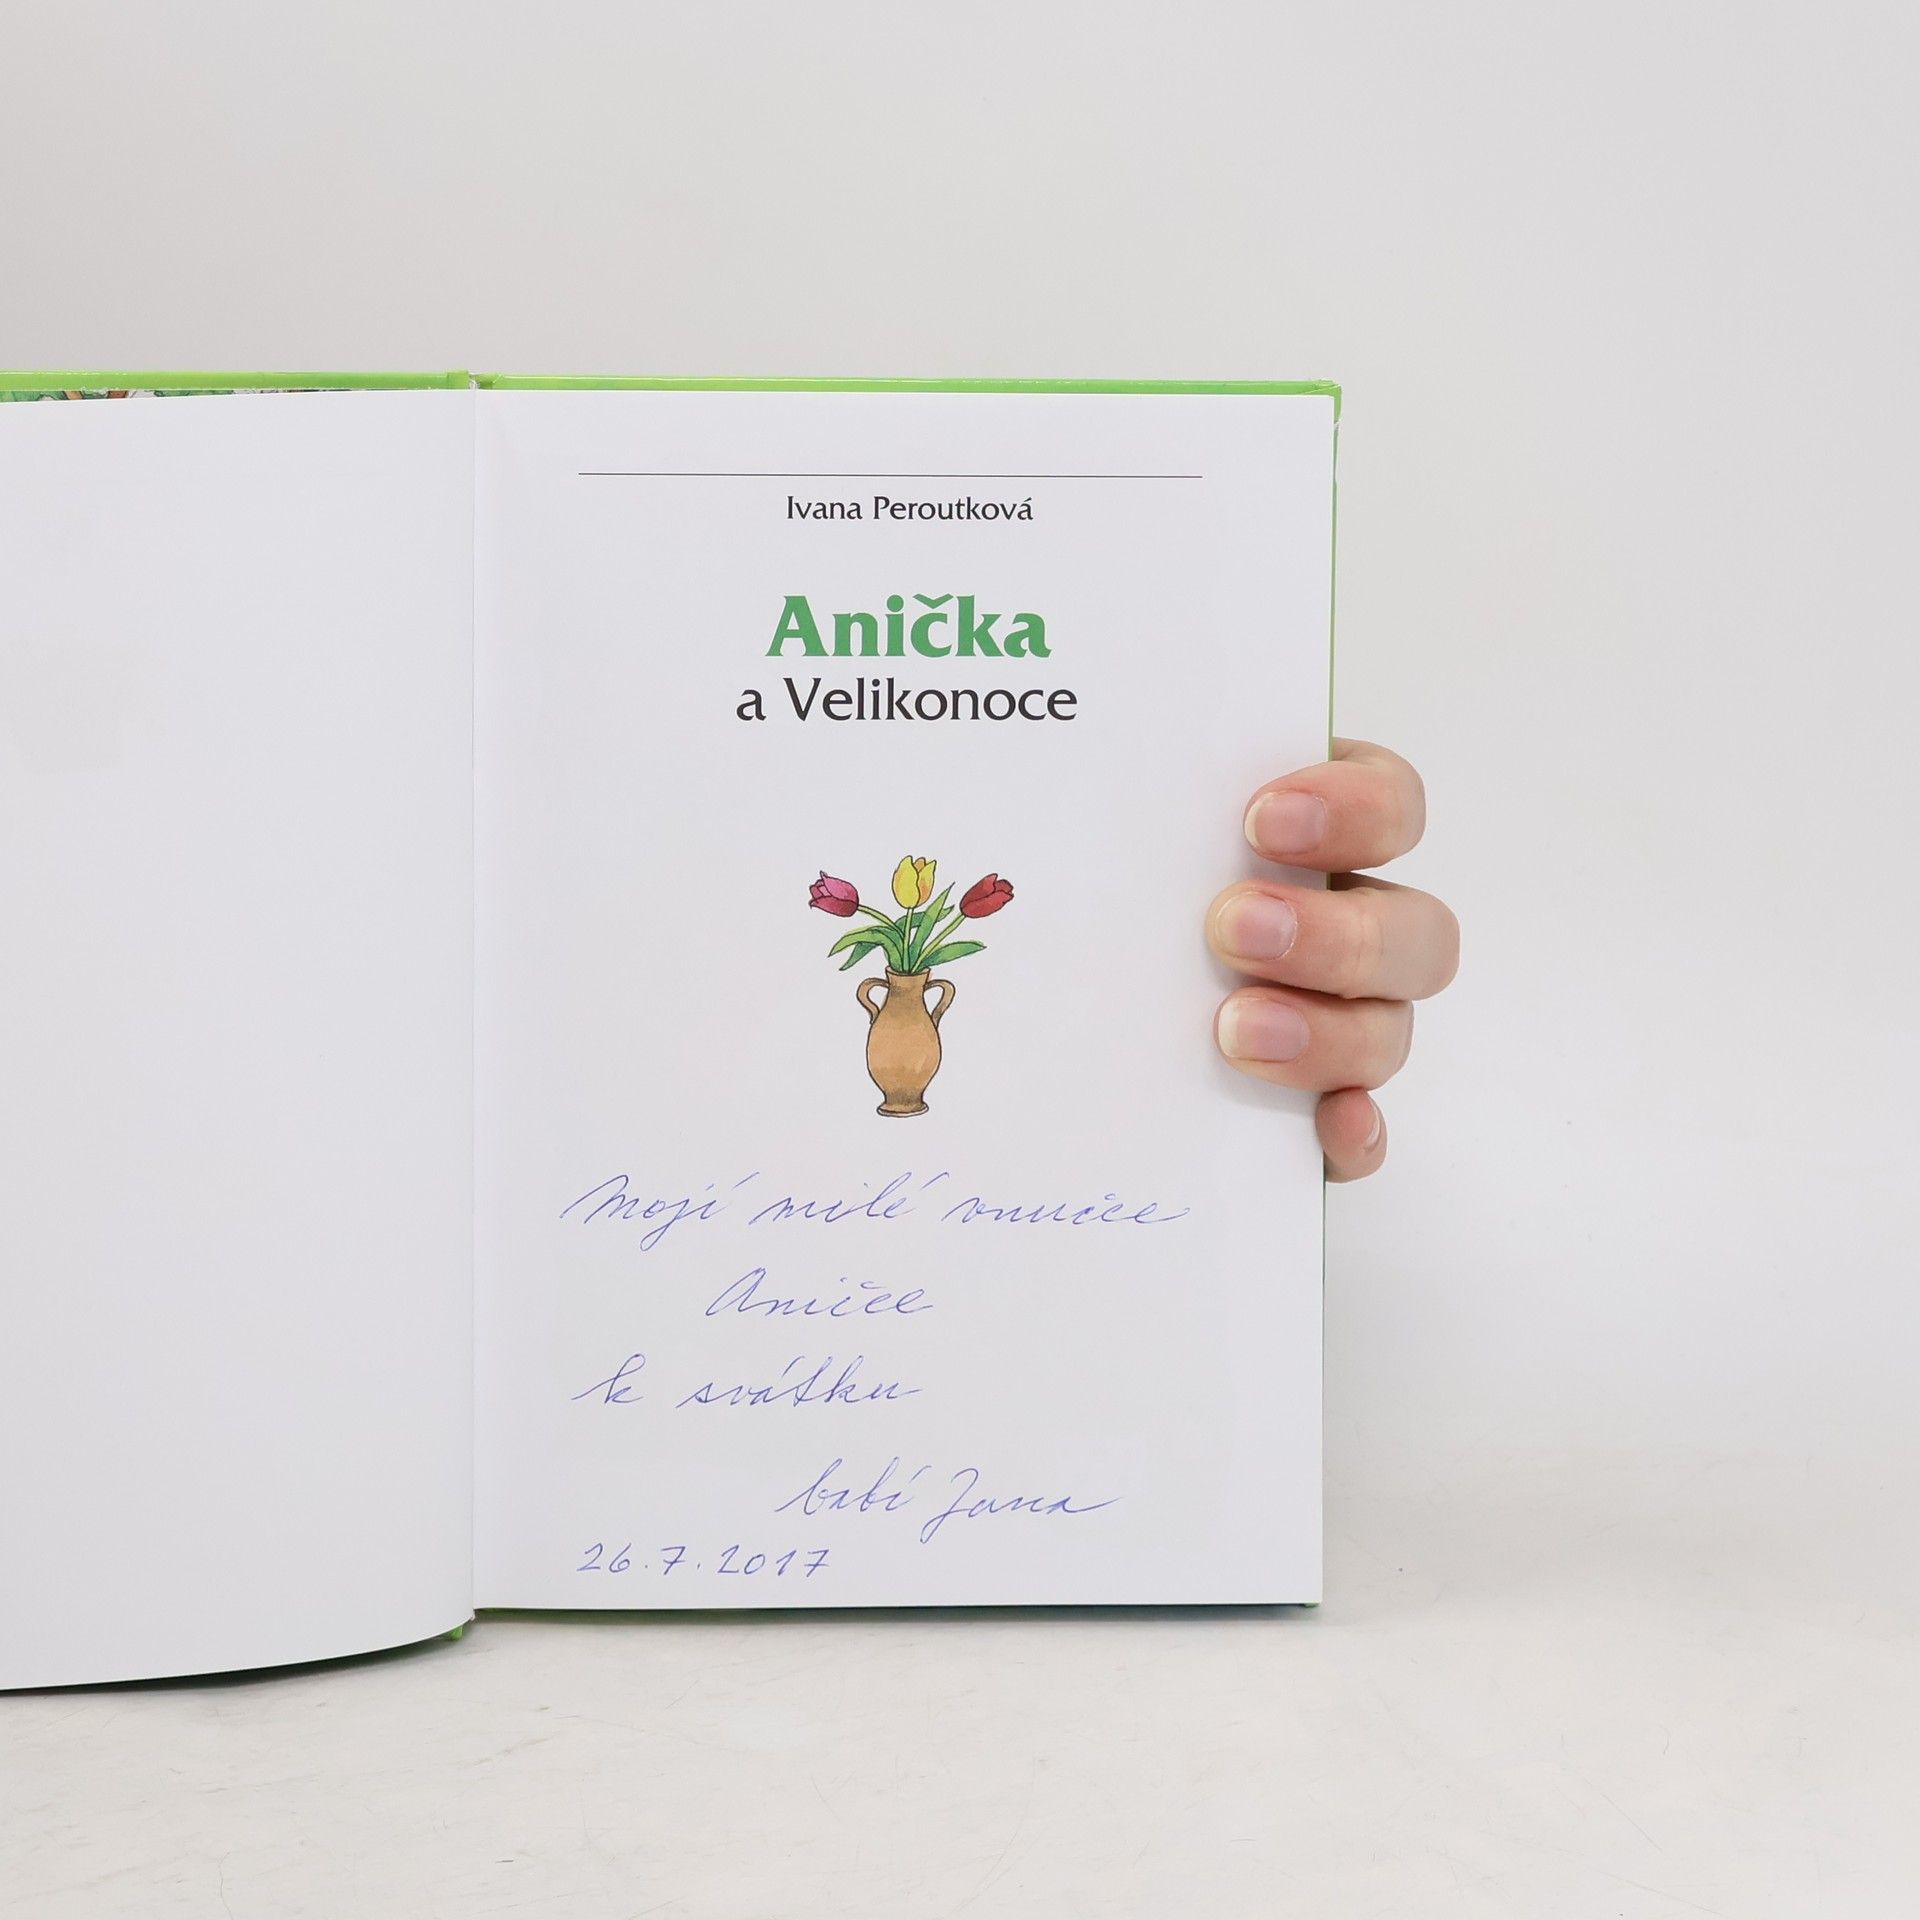 Ivana Peroutková
Anička
a Velikonoce
Mojí milé vnučce
Aničce
k svátku
babí Jana
26.7.2017